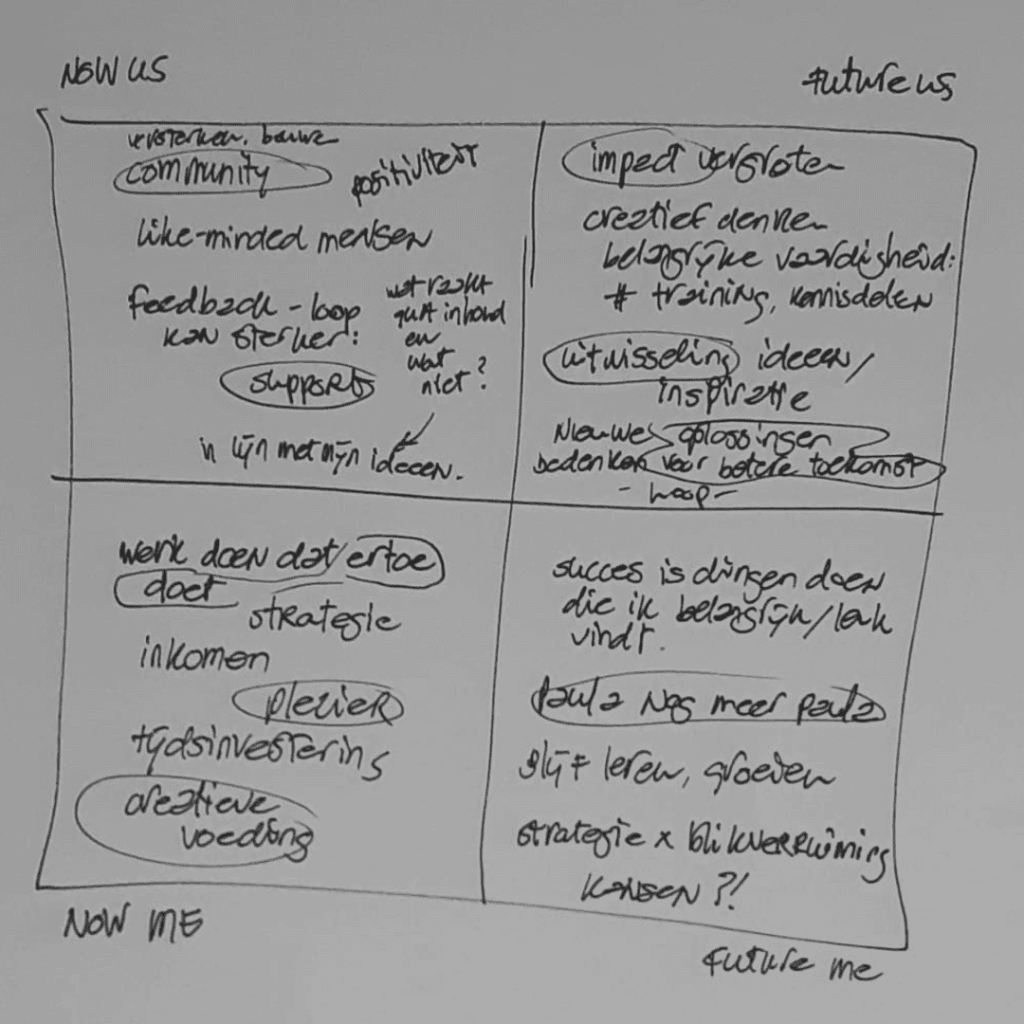 NOW US
FUTURE US
versterken, bouwe
community
positiviteit
like-minded mensen
feedback-loop
kan sterker:
wat raakt
qua inhoud
en
wat
niet?
support
in lijn met mijn ideeen.
impact vergroten
creatief denken
belangrijke vaardigheid:
# training, kennisdelen
uitwisseling ideeen/
inspiratie
Nieuwe oplossingen
bedenken voor betere toekomst
- hoop -
werk doen dat ertoe
doet
strategie
inkomen
plezier
tijdsinvestering
creatieve
voeding
succes is dingen doen
die ik belangrijk/leuk
vindt.
paula nog meer paula
blijf leren, groeien
strategie x blikverruiming
kansen?!
NOW ME
FUTURE ME